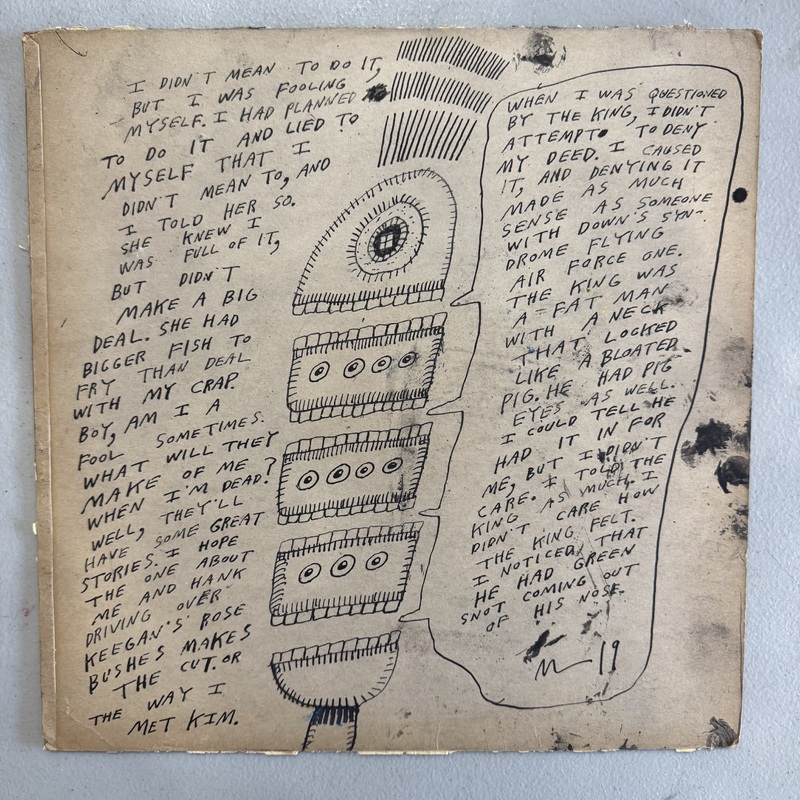 I DIDN'T MEAN TO DO IT,
BUT I WAS FOOLING
MYSELF. I HAD PLANNED
TO DO IT AND LIED TO
MYSELF THAT I
DIDN'T MEAN TO, AND
I TOLD HER SO.
SHE KNEW I
WAS FULL OF IT,
BUT DIDN'T
MAKE A BIG
DEAL. SHE HAD
BIGGER FISH TO
FRY THAN DEAL
WITH MY CRAP.
BOY, AM I A
FOOL SOMETIMES.
WHAT WILL THEY
MAKE OF ME
WHEN I'M DEAD?
WELL, THEY'LL
HAVE SOME GREAT
STORIES. I HOPE
THE ONE ABOUT
ME AND HANK
DRIVING OVER
KEEGAN'S ROSE
BUSHES MAKES
THE CUT. OR
THE WAY I
MET KIM.
WHEN I WAS QUESTIONED
BY THE KING, I DIDN'T
ATTEMPT TO DENY
MY DEED. I CAUSED
IT, AND DENYING IT
MADE AS MUCH
SENSE AS SOMEONE
WITH DOWN'S SYN-
DROME FLYING
AIR FORCE ONE.
THE KING WAS
A FAT MAN
WITH A NECK
THAT LOOKED
LIKE A BLOATED
PIG. HE HAD PIG
EYES AS WELL.
I COULD TELL HE
HAD IT IN FOR
ME, BUT I DIDN'T
CARE. I TOLD THE
KING AS MUCH. I
DIDN'T CARE HOW
THE KING FELT.
I NOTICED THAT
HE HAD GREEN
SNOT COMING OUT
OF HIS NOSE.
19